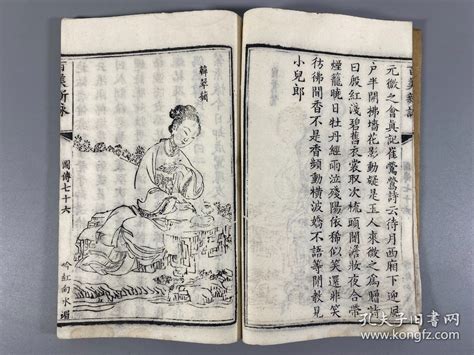 百美新詠
元微之會真記崔鶯鶯詩云待月西廂下迎風
戶半開拂墻花影動疑是玉人來微之爲贈詩
曰殷紅淺碧舊衣裳取次梳頭闇澹妝夜合帶
煙籠曉日牡丹經雨泣殘陽依稀似笑還非笑
彷彿聞香不是香頻動橫波嬌不語等閒教見
小兒郎
韓翠蘋
百美新詠
圖傳七十六
吟紅向水湄
孔夫子旧书网
kongfz.com